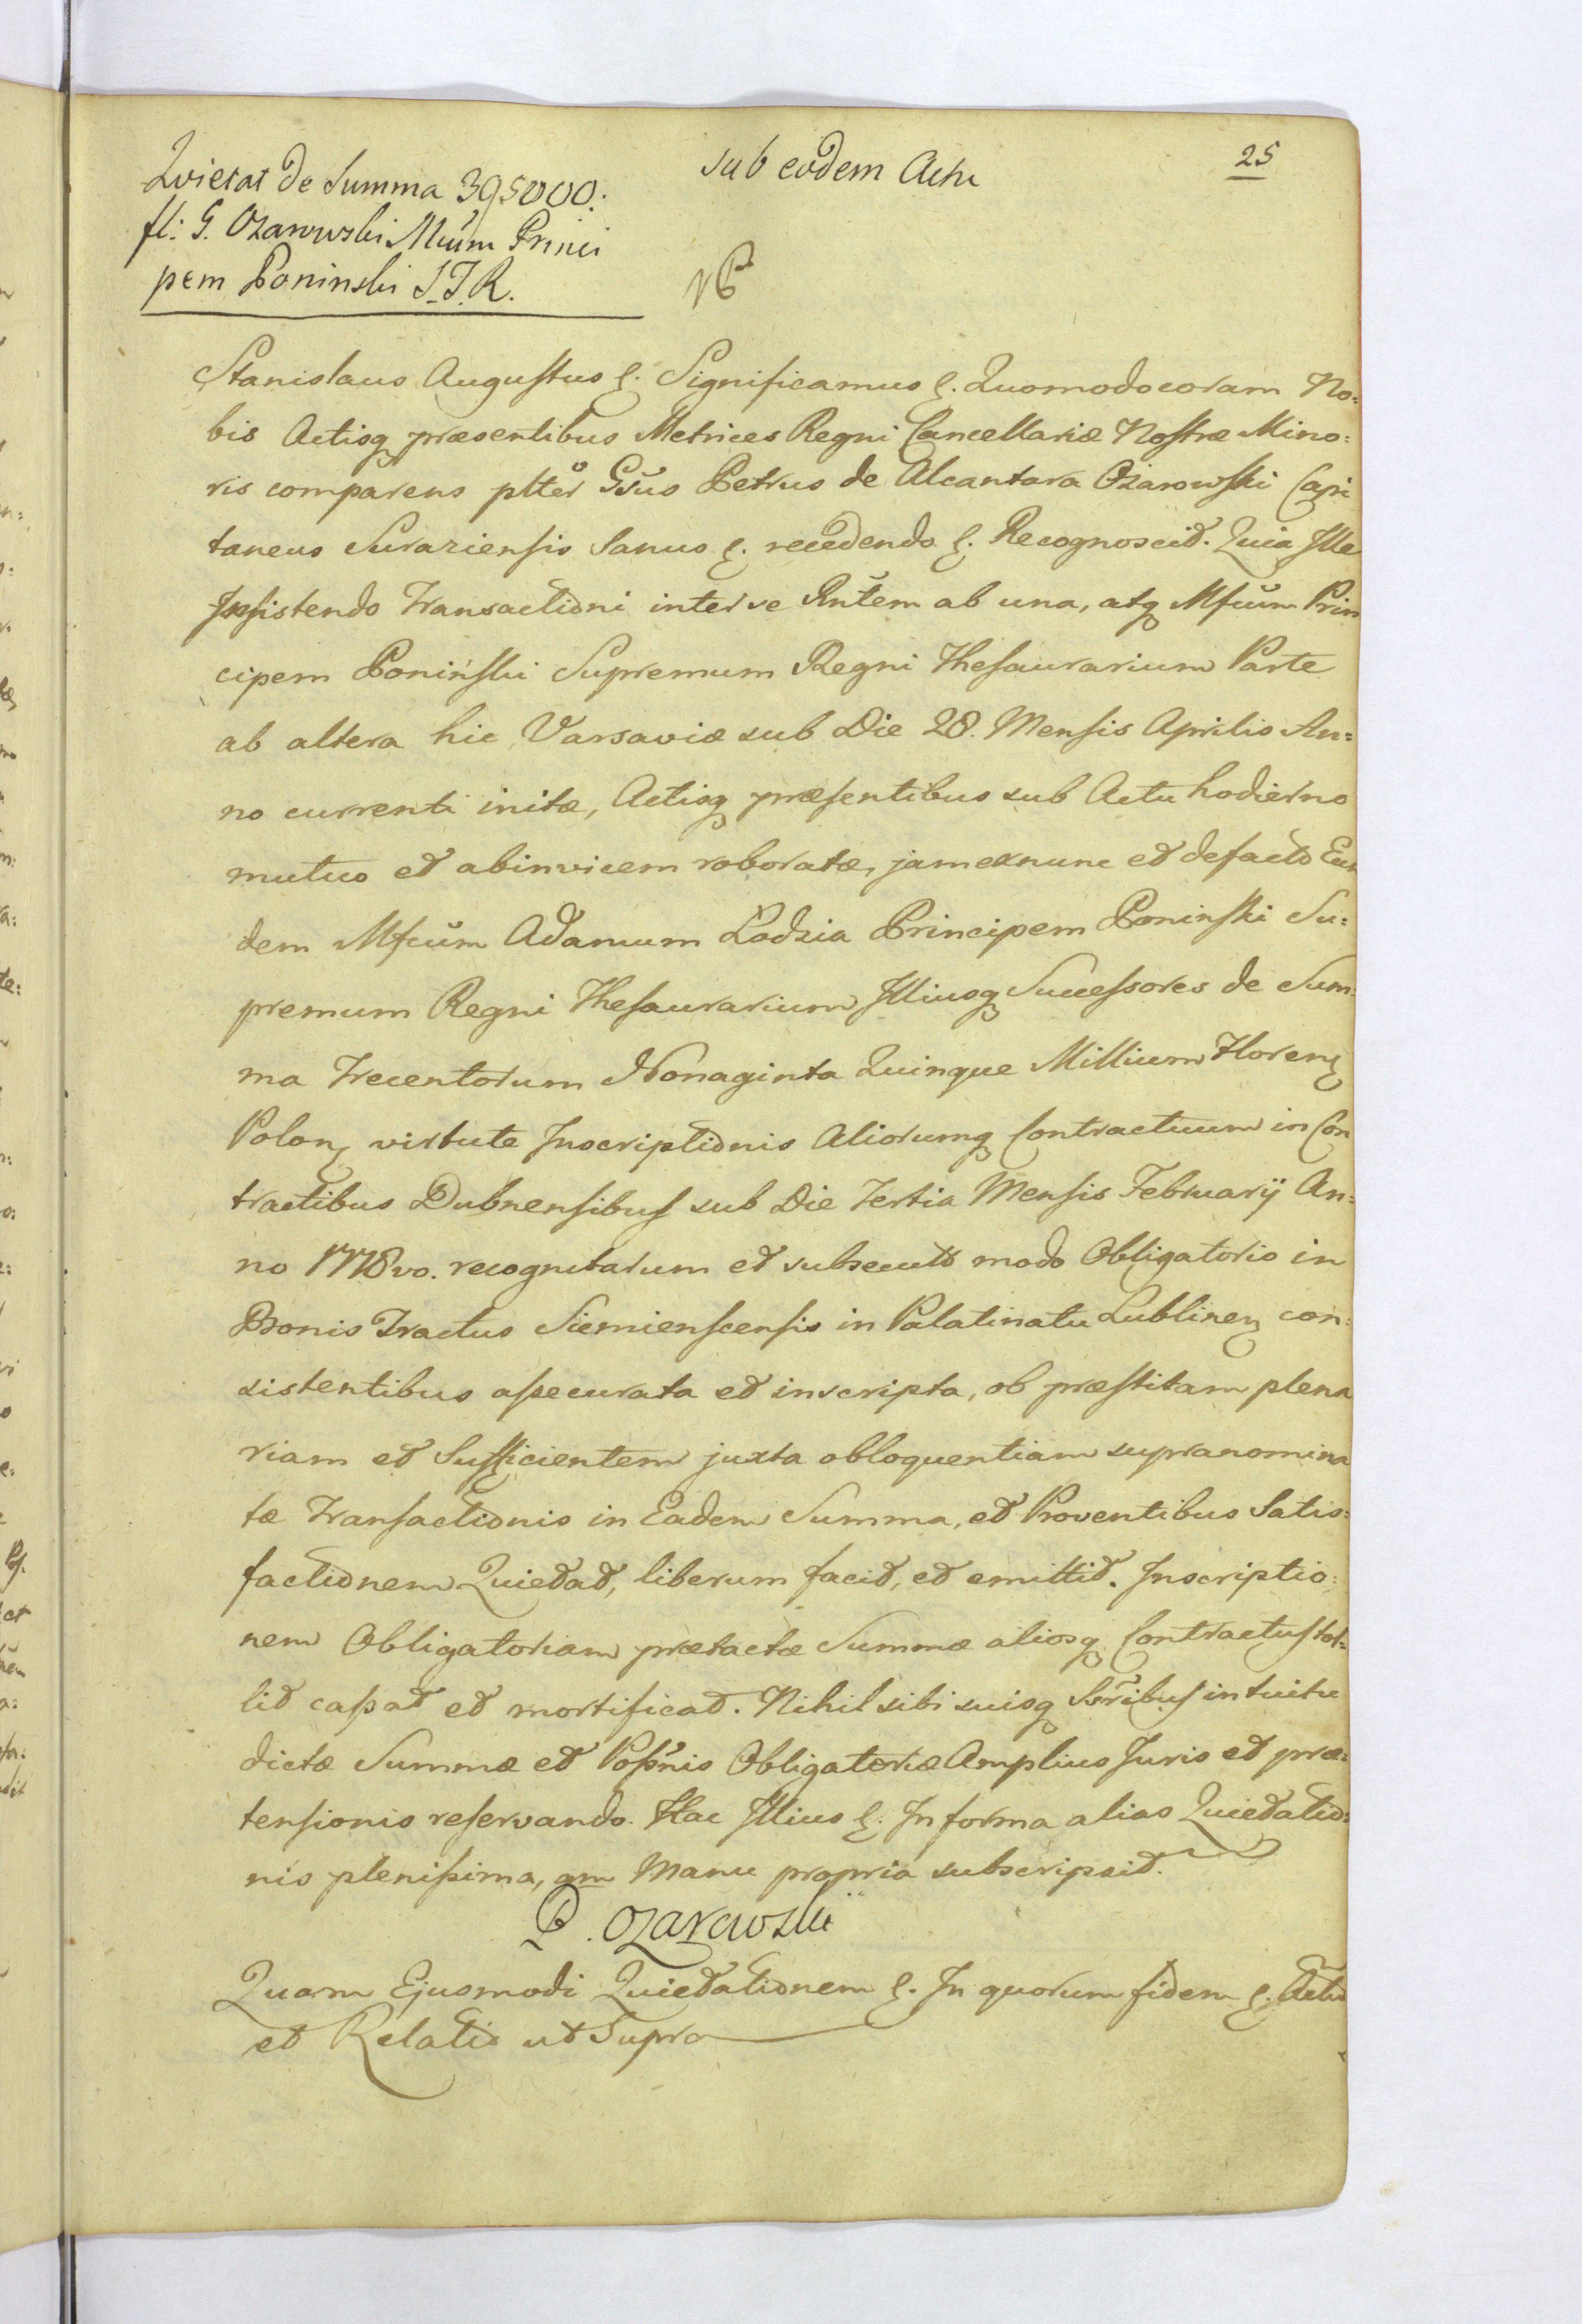 25
sub eodem Actu
Quietat de Summa 395000.
fl: G. Ożarowski Mcum Princi
pem Poninski S.T.R.
Stanislaus Augustus &. Significamus &. Quomodo coram No=
bis Actisq præsentibus Metrices Regni Cancellariæ Nostræ Mino=
ris comparens plter Gsus Petrus de Alcantara Ożarowski Capi
taneus Suraziensis Sanus &. recedendo &. Recognoscit. Quia Ille
Insistendo Transactioni inter se Rntem ab una, atq Mfcum Prin
cipem Poniński Supremum Regni Thesaurarium Parte
ab altera hic Varsaviæ sub Die 28. Mensis Aprilis An=
no currenti initæ, Actisq præsentibus sub Actu hodierno
mutuo et abinvicem roboratæ, jam exnunc et defacto Eun
dem Mfcum Adamum Lodzia Principem Poninski Su=
premum Regni Thesaurarium Illiusq Successores de Sum=
ma Trecentorum Nonaginta Quinque Millium Floren
Polon virtute Inscriptionis Aliorumq Contractuum in Con
tractibus Dubnensibus sub Die Tertia Mensis Februarij An=
no 1778vo. recognitarum et subsecuto modo Obligatorio in
Bonis Tractus Siemienscensis in Palatinatu Lublinen con=
sistentibus assecurata et inscripta, ob præstitam plena
riam et Sufficientem juxta obloquentiam supranomina
tæ Transactionis in Eadem Summa, et Proventibus Satis=
factionem Quietat, liberum facit, et emittit. Inscriptio=
nem Obligatoriam prætactæ Summæ aliosq Contractus tol=
lit cassat et mortificat. Nihil sibi suisq Ssribus intuitu
dictæ Summæ et Possnis Obligatoriæ Amplius Juris et præ=
tensionis reservando. Hac Illius &. In forma alias Quietatio=
nis plenissima, qm Manu propria subscripsit.
P. Ożarowski
Quam Ejusmodi Quietationem &. In quorum fidem &. Actu
et Relatio ut Supra